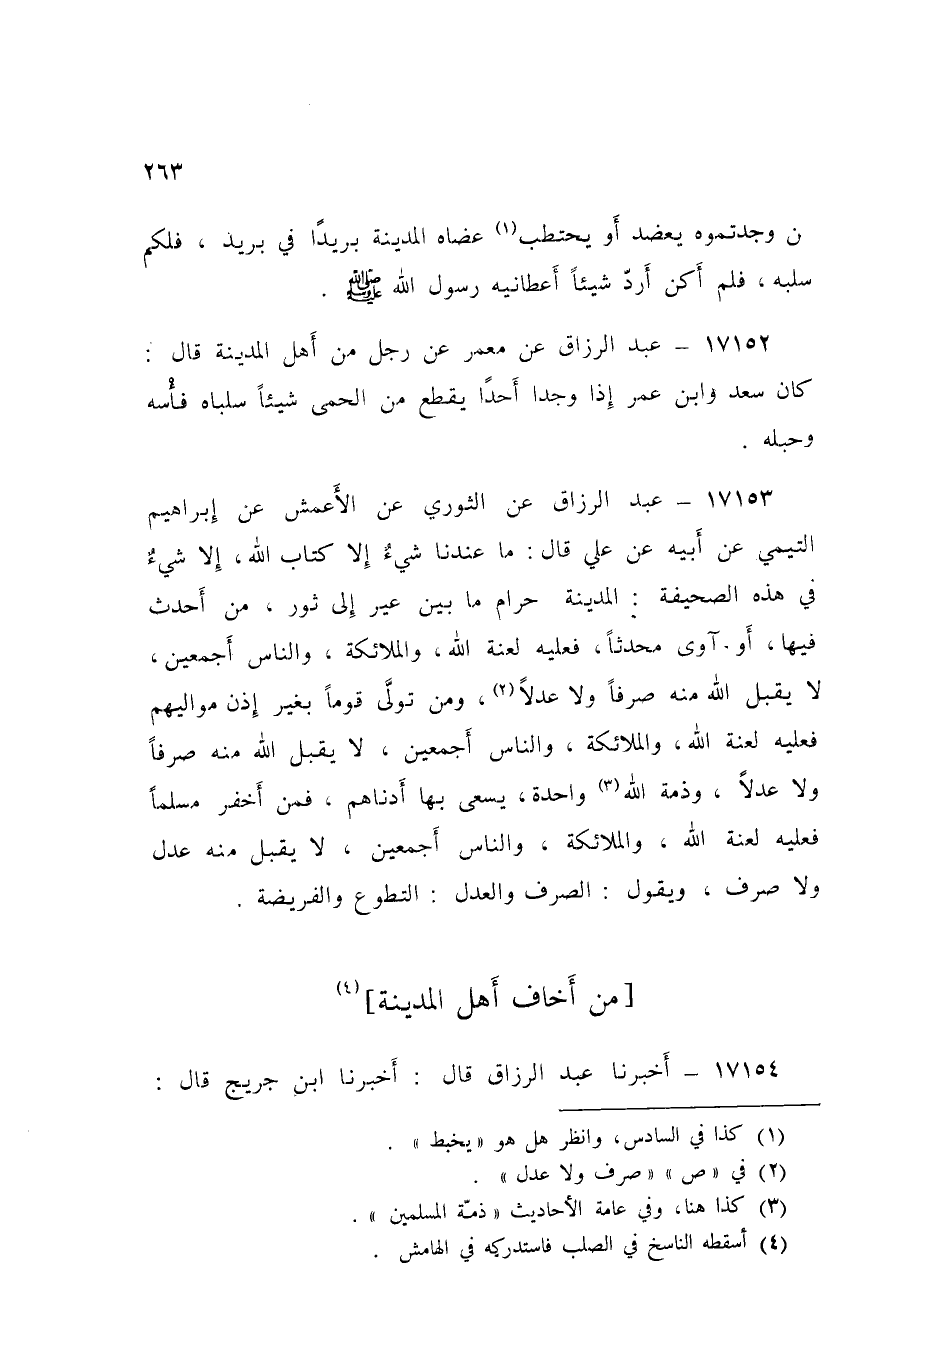 ٢٦٣
ن وجدتموه يعضد أَو يحتطب(١) عضاه المدينة بريدًا في بريد ، فلكم
سلبه ، فلم أَكن أَردّ شيئاً أَعطانيه رسول الله ﷺ .
١٧١٥٢ – عبد الرزاق عن معمر عن رجل من أَهل المدينة قال :
كان سعد وابن عمر إِذا وجدا أَحدًا يقطع من الحمى شيئاً سلباه فأْسه
وحبله .
١٧١٥٣ – عبد الرزاق عن الثوري عن الأَعمش عن إِبراهيم
التيمي عن أَبيه عن علي قال : ما عندنا شيءٌ إِلا كتاب الله ، إِلا شيءٌ
في هذه الصحيفة : المدينة حرام ما بين عير إِلى ثور ، من أَحدث
فيها ، أَو آوى محدثاً ، فعليه لعنة الله ، والملائكة ، والناس أَجمعين ،
لا يقبل الله منه صرفاً ولا عدلاً(٢) ، ومن تولَّى قوماً بغير إِذن مواليهم
فعليه لعنة الله ، والملائكة ، والناس أَجمعين ، لا يقبل الله منه صرفاً
ولا عدلاً ، وذمة الله(٣) واحدة ، يسعى بها أَدناهم ، فمن أَخفر مسلماً
فعليه لعنة الله ، والملائكة ، والناس أَجمعين ، لا يقبل منه عدل
ولا صرف ، ويقول : الصرف والعدل : التطوع والفريضة .
[من أَخاف أَهل المدينة](٤)
١٧١٥٤ – أَخبرنا عبد الرزاق قال : أَخبرنا ابن جريج قال :
(١) كذا في السادس، وانظر هل هو «يخبط» .
(٢) في «ص» «صرف ولا عدل» .
(٣) كذا هنا، وفي عامة الأحاديث «ذمّة المسلمين» .
(٤) أسقطه الناسخ في الصلب فاستدركه في الهامش .